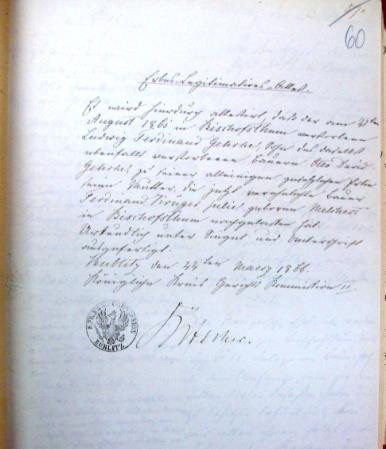 60
Erbes-Legitimations-Attest.
Es wird hierdurch attestirt, daß der am
August 1865 in Bischofthum verstorbene
Ludwig Ferdinand Gehrke, Sohn des daselbst
ebenfalls verstorbenen Bauern Otto David
Gehrke, zu seiner alleinigen gesetzlichen Erbin
seine Mutter, die jetzt verehelichte Bauer
Ferdinand Krüger Julie geborene
in Bischofthum nachgelassen hat.
Urkundlich unter Siegel und Unterschrift
ausgefertigt.
Bublitz den 24ten März 1866.
Königliche Kreis Gerichts Commission II.
BUBLITZ